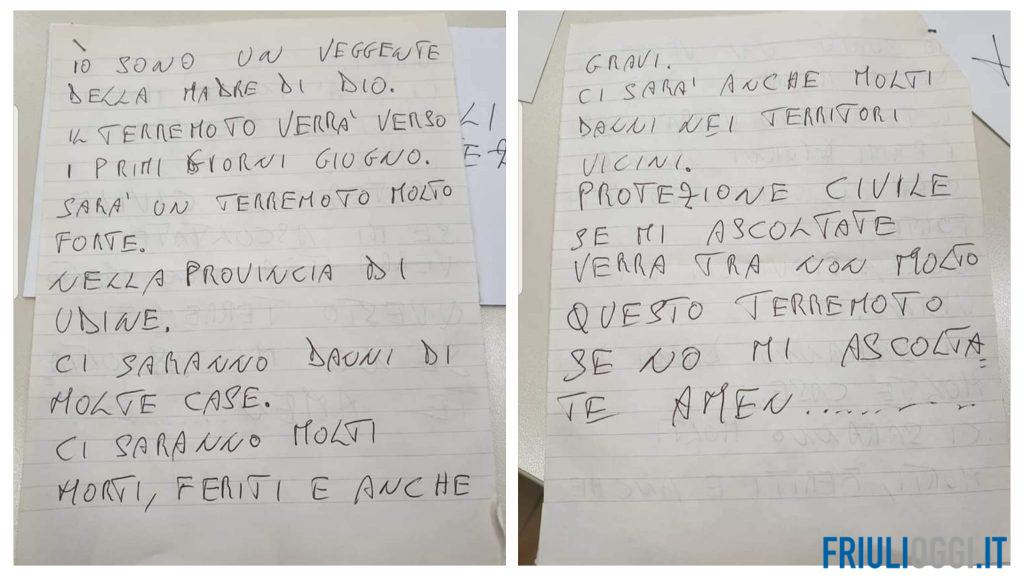 IO SONO UN VEGGENTE
DELLA MADRE DI DIO.
IL TERREMOTO VERRA' VERSO
I PRIMI GIORNI GIUGNO.
SARA' UN TERREMOTO MOLTO
FORTE.
NELLA PROVINCIA DI
UDINE.
CI SARANNO DANNI DI
MOLTE CASE.
CI SARANNO MOLTI
MORTI, FERITI E ANCHE
GRAVI.
CI SARA' ANCHE MOLTI
DANNI NEI TERRITORI
VICINI.
PROTEZIONE CIVILE
SE MI ASCOLTATE
VERRA TRA NON MOLTO
QUESTO TERREMOTO
SE NO MI ASCOLTA
TE AMEN..........
FRIULIOGGI.IT